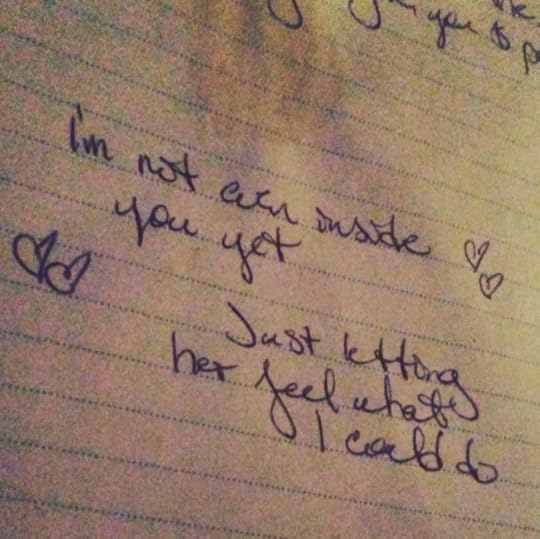 you to
I'm not even inside
you yet
Just letting
her feel what
I could do